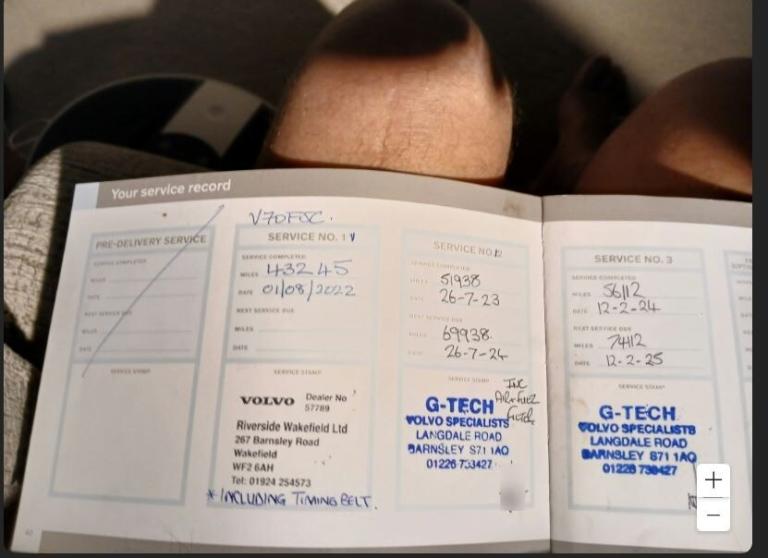 Your service record
PRE-DELIVERY SERVICE
SERVICE COMPLETED
MILES
DATE
NEXT SERVICE DUE
MILES
DATE
SERVICE STAMP
V70FJC.
SERVICE NO. 1
SERVICE COMPLETED
MILES 43245
DATE 01/08/2022
NEXT SERVICE DUE
MILES
DATE
SERVICE STAMP
VOLVO Dealer No
57789
Riverside Wakefield Ltd
267 Barnsley Road
Wakefield
WF2 6AH
Tel: 01924 254573
* INCLUDING TIMING BELT.
SERVICE NO. 2
SERVICE COMPLETED
MILES 51938
DATE 26-7-23
NEXT SERVICE DUE
MILES 69938
DATE 26-7-24
SERVICE STAMP
INC
AIR+FUEL
FILTER
G-TECH
VOLVO SPECIALISTS
LANGDALE ROAD
BARNSLEY S71 1AQ
01226 733427
SERVICE NO. 3
SERVICE COMPLETED
MILES 56112
DATE 12-2-24
NEXT SERVICE DUE
MILES 74112
DATE 12-2-25
SERVICE STAMP
G-TECH
VOLVO SPECIALISTS
LANGDALE ROAD
BARNSLEY S71 1AQ